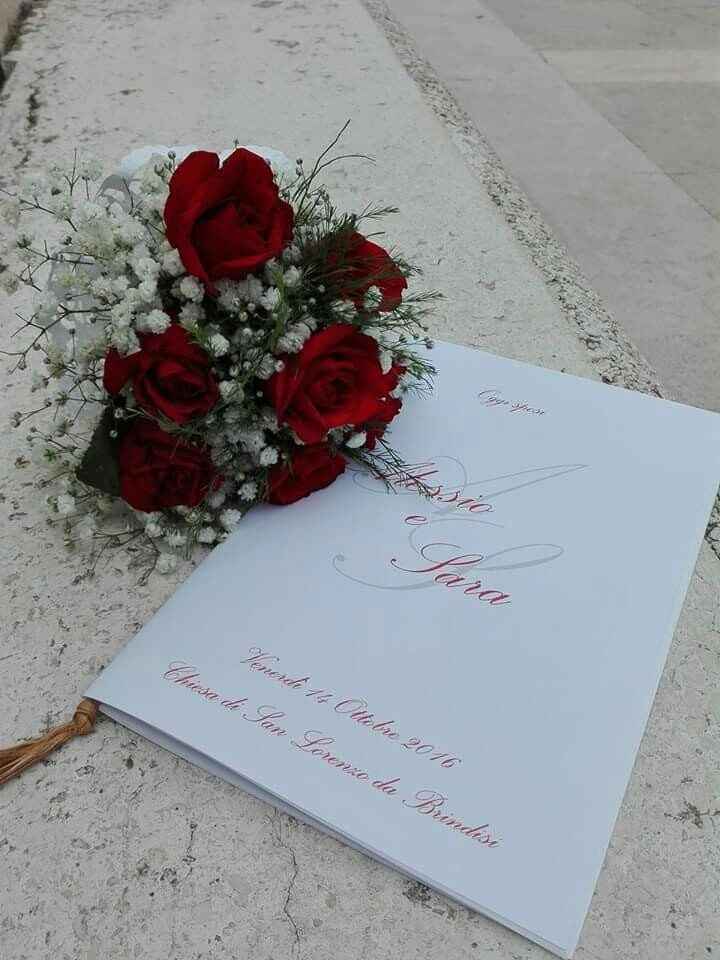 Oggi sposi
Alessio
e
Sara
Venerdì 14 Ottobre 2016
Chiesa di San Lorenzo da Brindisi